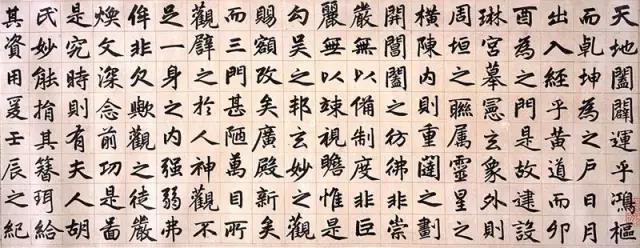 天地闔闢運乎鴻樞
而乾坤為之戶日月
出入經乎黃道而卯
酉為之門是故建設
琳宮摹憲玄象外則
周垣之聯属靈星之
橫陳内則重闥之劃
開閶闔之彷彿非崇
嚴無以備制度非巨
麗無以竦視瞻惟是
勾吳之邦玄妙之觀
賜額改矣廣殿新矣
而三門甚陋萬目所
觀辟之於人神觀不
足一身之内强弱弗
侔非欠歟觀之徒嚴
煥文深念前功是啚
是究時則有夫人胡
氏妙能捐其簪珥給
其資用爰壬辰之紀